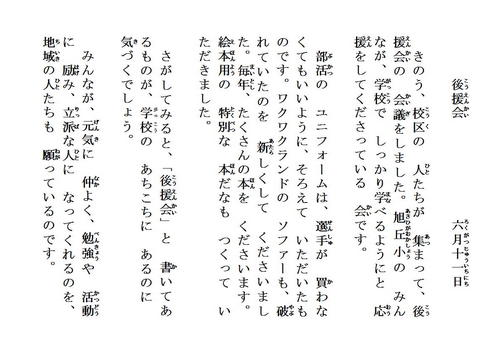 後援会　　六月十一日
きのう、校区の　人たちが　集まって、後
援会の　会議をしました。旭丘小の　みん
なが、学校で　しっかり学べるようにと　応
援をしてくださっている　会です。
部活の　ユニフォームは、選手が　買わな
くてもいいように、そろえて　いただいたも
のです。ワクワクランドの　ソファーも、破
れていたのを　新しくして　くださいまし
た。毎年、たくさんの本を　くださいます。
絵本用の　特別な　本だなも　つくってい
ただきました。
さがしてみると、「後援会」と　書いてあ
るものが、学校の　あちこちに　あるのに
気づくでしょう。
みんなが、元気に　仲よく、勉強や　活動
に　励み、立派な人に　なってくれるのを、
地域の　人たちも　願っているのです。